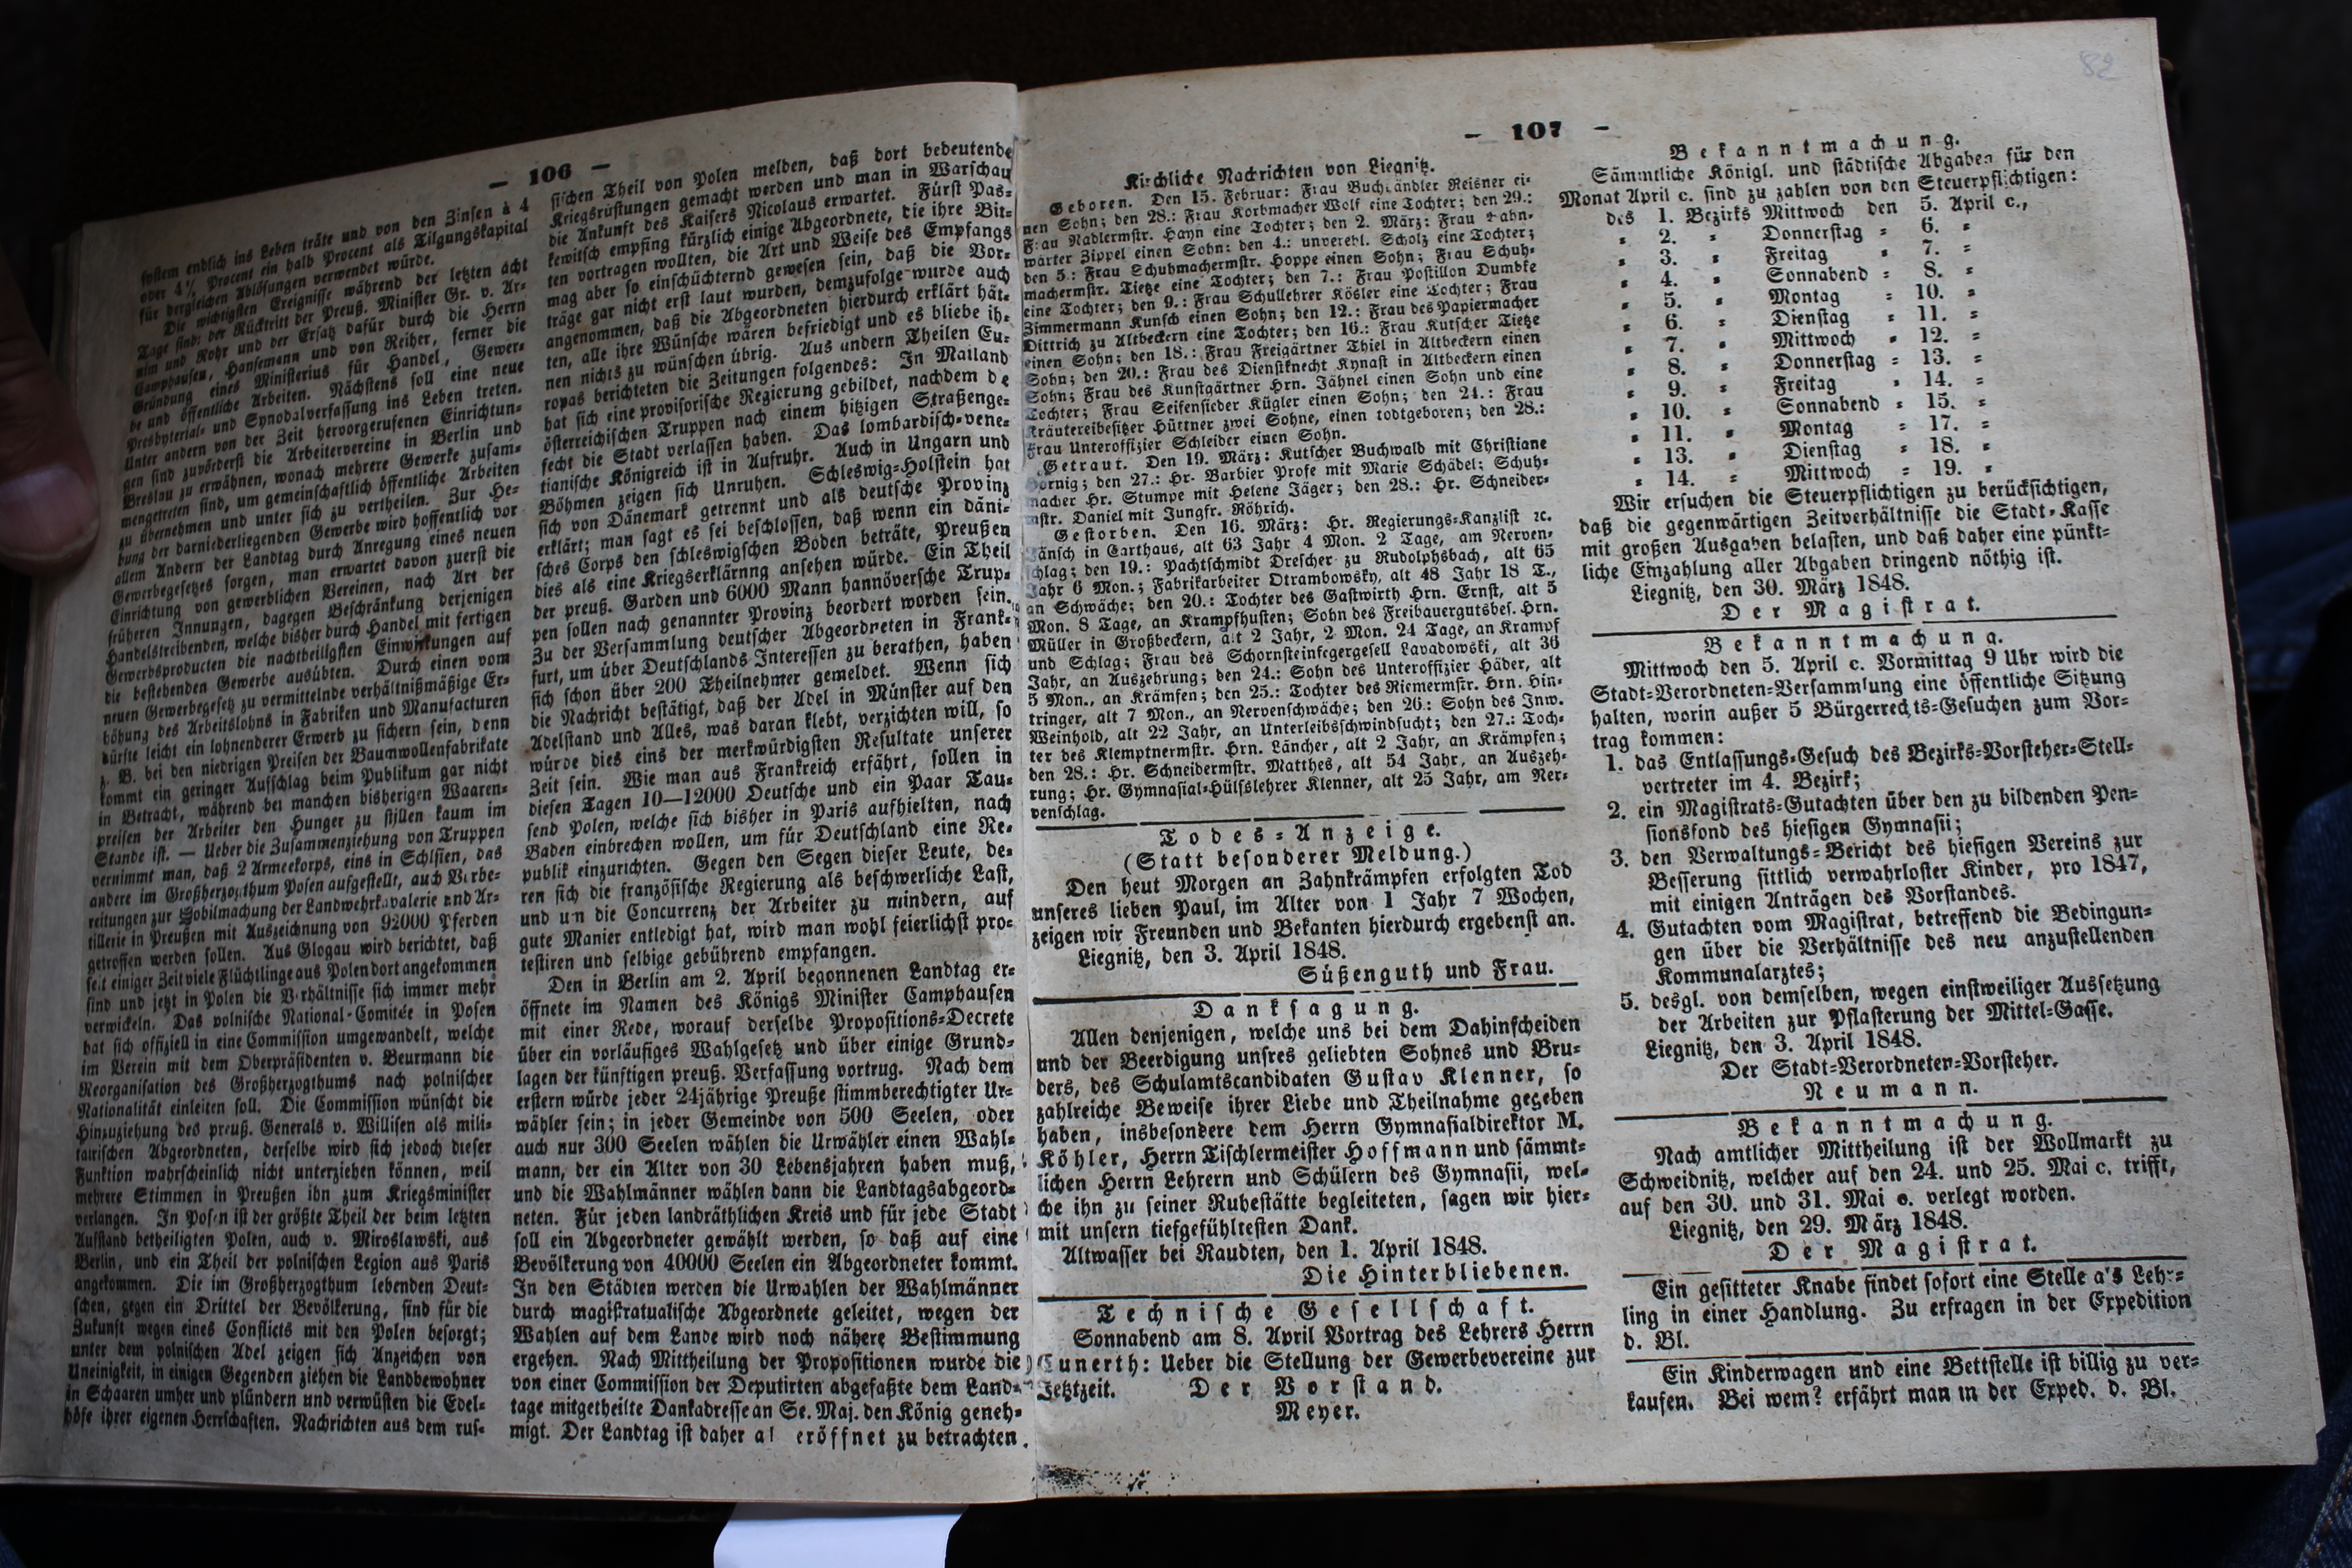 — 106 —
system endlich ins Leben träte und von den Zinsen à 4
oder 4½ Procent ein halb Procent als Tilgungskapital
für dergleichen Ablösungen verwendet würde.
Die wichtigsten Ereignisse während der letzten acht
Tage sind: der Rücktritt der Preuß. Minister Gr. v. Ar-
nim und Rohr und der Ersatz dafür durch die Herrn
Camphausen, Hansemann und von Reiher, ferner die
Gründung eines Ministerius für Handel, Gewer-
be und öffentliche Arbeiten. Nächstens soll eine neue
Presbyterial- und Synodalverfassung ins Leben treten.
Unter andern von der Zeit hervorgerufenen Einrichtun-
gen sind zuvörderst die Arbeitervereine in Berlin und
Breslau zu erwähnen, wonach mehrere Gewerke zusam-
mengetreten sind, um gemeinschaftlich öffentliche Arbeiten
zu übernehmen und unter sich zu vertheilen. Zur He-
bung der darniederliegenden Gewerbe wird hoffentlich vor
allem Andern der Landtag durch Anregung eines neuen
Gewerbegesetzes sorgen, man erwartet davon zuerst die
Einrichtung von gewerblichen Vereinen, nach Art der
früheren Innungen, dagegen Beschränkung derjenigen
Handelstreibenden, welche bisher durch Handel mit fertigen
Gewerbsproducten die nachtheiligsten Einwirkungen auf
die bestehenden Gewerbe ausübten. Durch einen vom
neuen Gewerbegesetz zu vermittelnde verhältnißmäßige Er-
höhung des Arbeitslohns in Fabriken und Manufacturen
dürfte leicht ein lohnenderer Erwerb zu sichern sein, denn
z. B. bei den niedrigen Preisen der Baumwollenfabrikate
kommt ein geringer Aufschlag beim Publikum gar nicht
in Betracht, während bei manchen bisherigen Waaren-
preisen der Arbeiter den Hunger zu stillen kaum im
Stande ist. — Ueber die Zusammenziehung von Truppen
vernimmt man, daß 2 Armeekorps, eins in Schlsien, das
andere im Großherzogthum Posen aufgestellt, auch Vorbe-
reitungen zur Mobilmachung der Landwehrkavalerie und Ar-
tillerie in Preußen mit Auszeichnung von 92000 Pferden
getroffen werden sollen. Aus Glogau wird berichtet, daß
seit einiger Zeit viele Flüchtlinge aus Polen dort angekommen
sind und jetzt in Polen die Verhältnisse sich immer mehr
verwickeln. Das polnische National-Comitée in Posen
hat sich offiziell in eine Commission umgewandelt, welche
im Verein mit dem Oberpräsidenten v. Beurmann die
Reorganisation des Großherzogthums nach polnischer
Nationalität einleiten soll. Die Commission wünscht die
Hinzuziehung des preuß. Generals v. Willisen als mili-
tairischen Abgeordneten, derselbe wird sich jedoch dieser
Funktion wahrscheinlich nicht unterziehen können, weil
mehrere Stimmen in Preußen ihn zum Kriegsminister
verlangen. In Posen ist der größte Theil der beim letzten
Aufstand betheiligten Polen, auch v. Miroslawski, aus
Berlin, und ein Theil der polnischen Legion aus Paris
angekommen. Die im Großherzogthum lebenden Deut-
schen, gegen ein Drittel der Bevölkerung, sind für die
Zukunft wegen eines Conflicts mit den Polen besorgt;
unter dem polnischen Adel zeigen sich Anzeichen von
Uneinigkeit, in einigen Gegenden ziehen die Landbewohner
in Schaaren umher und plündern und verwüsten die Edel-
höfe ihrer eigenen Herrschaften. Nachrichten aus dem rus-
sischen Theil von Polen melden, daß dort bedeutende
Kriegsrüstungen gemacht werden und man in Warschau
die Ankunft des Kaisers Nicolaus erwartet. Fürst Pas-
kewitsch empfing kürzlich einige Abgeordnete, die ihre Bit-
ten vortragen wollten, die Art und Weise des Empfangs
mag aber so einschüchternd gewesen sein, daß die Vor-
träge gar nicht erst laut wurden, demzufolge wurde auch
angenommen, daß die Abgeordneten hierdurch erklärt hät-
ten, alle ihre Wünsche wären befriedigt und es bliebe ih-
nen nichts zu wünschen übrig. Aus andern Theilen Eu-
ropas berichteten die Zeitungen folgendes: In Mailand
hat sich eine provisorische Regierung gebildet, nachdem de
österreichischen Truppen nach einem hitzigen Straßenge-
fecht die Stadt verlassen haben. Das lombardisch-vene-
tianische Königreich ist in Aufruhr. Auch in Ungarn und
Böhmen zeigen sich Unruhen. Schleswig-Holstein hat
sich von Dänemark getrennt und als deutsche Provinz
erklärt; man sagt es sei beschlossen, daß wenn ein däni-
sches Corps den schleswigschen Boden beträte, Preußen
dies als eine Kriegserklärnng ansehen würde. Ein Theil
der preuß. Garden und 6000 Mann hannöversche Trup-
pen sollen nach genannter Provinz beordert worden sein.
Zu der Versammlung deutscher Abgeordneten in Frank-
furt, um über Deutschlands Interessen zu berathen, haben
sich schon über 200 Theilnehmer gemeldet. Wenn sich
die Nachricht bestätigt, daß der Adel in Münster auf den
Adelstand und Alles, was daran klebt, verzichten will, so
würde dies eins der merkwürdigsten Resultate unserer
Zeit sein. Wie man aus Frankreich erfährt, sollen in
diesen Tagen 10—12000 Deutsche und ein Paar Tau-
send Polen, welche sich bisher in Paris aufhielten, nach
Baden einbrechen wollen, um für Deutschland eine Re-
publik einzurichten. Gegen den Segen dieser Leute, de-
ren sich die französische Regierung als beschwerliche Last,
und um die Concurrenz der Arbeiter zu mindern, auf
gute Manier entledigt hat, wird man wohl feierlichst pro-
testiren und selbige gebührend empfangen.
Den in Berlin am 2. April begonnenen Landtag er-
öffnete im Namen des Königs Minister Camphausen
mit einer Rede, worauf derselbe Propositions-Decrete
über ein vorläufiges Wahlgesetz und über einige Grund-
lagen der künftigen preuß. Verfassung vortrug. Nach dem
erstern würde jeder 24jährige Preuße stimmberechtigter Ur-
wähler sein; in jeder Gemeinde von 500 Seelen, oder
auch nur 300 Seelen wählen die Urwähler einen Wahl-
mann, der ein Alter von 30 Lebensjahren haben muß,
und die Wahlmänner wählen dann die Landtagsabgeord-
neten. Für jeden landräthlichen Kreis und für jede Stadt
soll ein Abgeordneter gewählt werden, so daß auf eine
Bevölkerung von 40000 Seelen ein Abgeordneter kommt.
In den Städten werden die Urwahlen der Wahlmänner
durch magistratualische Abgeordnete geleitet, wegen der
Wahlen auf dem Lande wird noch nähere Bestimmung
ergehen. Nach Mittheilung der Propositionen wurde die
von einer Commission der Deputirten abgefaßte dem Land-
tage mitgetheilte Dankadresse an Se. Maj. den König geneh-
migt. Der Landtag ist daher al eröffnet zu betrachten.
82
— 107 —
Kirchliche Nachrichten von Liegnitz.
Geboren. Den 15. Februar: Frau Buchhändler Reisner ei-
nen Sohn; den 28.: Frau Korbmacher Wolf eine Tochter; den 29.:
Frau Nadlermstr. Hayn eine Tochter; den 2. März: Frau Bahn-
wärter Zippel einen Sohn; den 4.: unverehl. Scholz eine Tochter;
den 5.: Frau Schuhmachermstr. Hoppe einen Sohn; Frau Schuh-
machermstr. Tietze eine Tochter; den 7.: Frau Postillon Dumbke
eine Tochter; den 9.: Frau Schullehrer Kösler eine Tochter; Frau
Zimmermann Kunsch einen Sohn; den 12.: Frau des Papiermacher
Dittrich zu Altbeckern eine Tochter; den 16.: Frau Kutscher Tietze
einen Sohn; den 18.: Frau Freigärtner Thiel in Altbeckern einen
Sohn; den 20.: Frau des Dienstknecht Kynast in Altbeckern einen
Sohn; Frau des Kunstgärtner Hrn. Jähnel einen Sohn und eine
Tochter; Frau Seifensieder Kügler einen Sohn; den 24.: Frau
Kräutereibesitzer Hüttner zwei Sohne, einen todtgeboren; den 28.:
Frau Unteroffizier Schleider einen Sohn.
Getraut. Den 19. März: Kutscher Buchwald mit Christiane
Hornig; den 27.: Hr. Barbier Profe mit Marie Schädel; Schuh-
macher Hr. Stumpe mit Helene Jäger; den 28.: Hr. Schneider-
mstr. Daniel mit Jungfr. Röhrich.
Gestorben. Den 16. März: Hr. Regierungs-Kanzlist ꝛc.
änsch in Carthaus, alt 63 Jahr 4 Mon. 2 Tage, am Nerven-
schlag; den 19.: Pachtschmidt Drescher zu Rudolphsbach, alt 65
Jahr 6 Mon.; Fabrikarbeiter Otrambowsky, alt 48 Jahr 18 T.,
an Schwäche; den 20.: Tochter des Gastwirth Hrn. Ernst, alt 5
Mon. 8 Tage, an Krampfhusten; Sohn des Freibauergutsbes. Hrn.
Müller in Großbeckern, alt 2 Jahr, 2 Mon. 24 Tage, an Krampf
und Schlag; Frau des Schornsteinfegergesell Lavadowski, alt 36
Jahr, an Auszehrung; den 24.: Sohn des Unteroffizier Häder, alt
5 Mon., an Krämfen; den 25.: Tochter des Riemermstr. Hrn. Hin-
tringer, alt 7 Mon., an Nervenschwäche; den 26.: Sohn des Inw.
Weinhold, alt 22 Jahr, an Unterleibsschwindsucht; den 27.: Toch-
ter des Klemptnermstr. Hrn. Läncher, alt 2 Jahr, an Krämpfen;
den 28.: Hr. Schneidermstr. Matthes, alt 54 Jahr, an Auszeh-
rung; Hr. Gymnasial-Hülfslehrer Klenner, alt 25 Jahr, am Ner-
venschlag.
Todes-Anzeige.
(Statt besonderer Meldung.)
Den heut Morgen an Zahnkrämpfen erfolgten Tod
unseres lieben Paul, im Alter von 1 Jahr 7 Wochen,
zeigen wir Freunden und Bekanten hierdurch ergebenst an.
Liegnitz, den 3. April 1848.
Süßenguth und Frau.
Danksagung.
Allen denjenigen, welche uns bei dem Dahinscheiden
und der Beerdigung unsres geliebten Sohnes und Bru-
ders, des Schulamtscandidaten Gustav Klenner, so
zahlreiche Beweise ihrer Liebe und Theilnahme gegeben
haben, insbesondere dem Herrn Gymnasialdirektor M.
Köhler, Herrn Tischlermeister Hoffmann und sämmt-
lichen Herrn Lehrern und Schülern des Gymnasii, wel-
che ihn zu seiner Ruhestätte begleiteten, sagen wir hier-
mit unsern tiefgefühltesten Dank.
Altwasser bei Raudten, den 1. April 1848.
Die Hinterbliebenen.
Technische Gesellschaft.
Sonnabend am 8. April Vortrag des Lehrers Herrn
Cunerth: Ueber die Stellung der Gewerbevereine zur
Jetztzeit. Der Vorstand.
Meyer.
Bekanntmachung.
Sämmtliche Königl. und städtische Abgaben für den
Monat April c. sind zu zahlen von den Steuerpflichtigen:
des 1. Bezirks Mittwoch den 5. April c.,
= 2. = Donnerstag = 6. =
= 3. = Freitag = 7. =
= 4. = Sonnabend = 8. =
= 5. = Montag = 10. =
= 6. = Dienstag = 11. =
= 7. = Mittwoch = 12. =
= 8. = Donnerstag = 13. =
= 9. = Freitag = 14. =
= 10. = Sonnabend = 15. =
= 11. = Montag = 17. =
= 13. = Dienstag = 18. =
= 14. = Mittwoch = 19. =
Wir ersuchen die Steuerpflichtigen zu berücksichtigen,
daß die gegenwärtigen Zeitverhältnisse die Stadt-Kasse
mit großen Ausgaben belasten, und daß daher eine pünkt-
liche Einzahlung aller Abgaben dringend nöthig ist.
Liegnitz, den 30. März 1848.
Der Magistrat.
Bekanntmachung.
Mittwoch den 5. April c. Vormittag 9 Uhr wird die
Stadt-Verordneten-Versammlung eine öffentliche Sitzung
halten, worin außer 5 Bürgerrechts-Gesuchen zum Vor-
trag kommen:
1. das Entlassungs-Gesuch des Bezirks-Vorsteher-Stell-
vertreter im 4. Bezirk;
2. ein Magistrats-Gutachten über den zu bildenden Pen-
sionsfond des hiesigen Gymnasii;
3. den Verwaltungs-Bericht des hiesigen Vereins zur
Besserung sittlich verwahrloster Kinder, pro 1847,
mit einigen Anträgen des Vorstandes.
4. Gutachten vom Magistrat, betreffend die Bedingun-
gen über die Verhältnisse des neu anzustellenden
Kommunalarztes;
5. desgl. von demselben, wegen einstweiliger Aussetzung
der Arbeiten zur Pflasterung der Mittel-Gasse.
Liegnitz, den 3. April 1848.
Der Stadt-Verordneten-Vorsteher.
Neumann.
Bekanntmachung.
Nach amtlicher Mittheilung ist der Wollmarkt zu
Schweidnitz, welcher auf den 24. und 25. Mai c. trifft,
auf den 30. und 31. Mai c. verlegt worden.
Liegnitz, den 29. März 1848.
Der Magistrat.
Ein gesitteter Knabe findet sofort eine Stelle a's Lehr-
ling in einer Handlung. Zu erfragen in der Expedition
d. Bl.
Ein Kinderwagen und eine Bettstelle ist billig zu ver-
kaufen. Bei wem? erfährt man in der Exped. d. Bl.